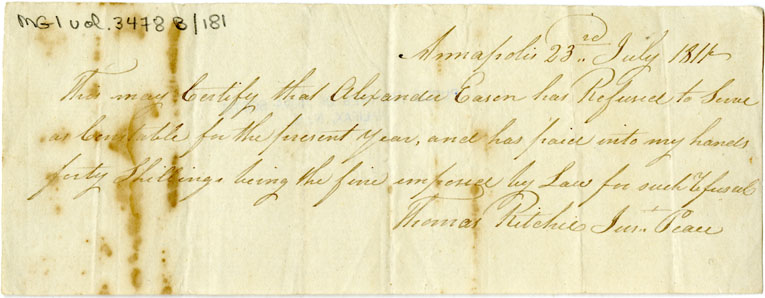 MG1 vol. 3478 B/181
Annapolis 23rd July 1814
This may Certify that Alexander Eason has Refused to Serve
as Constable for the present Year, and has paid into my hands
forty Shillings being the fine imposed by Law for such Refusal
Thomas Ritchie Just Peace